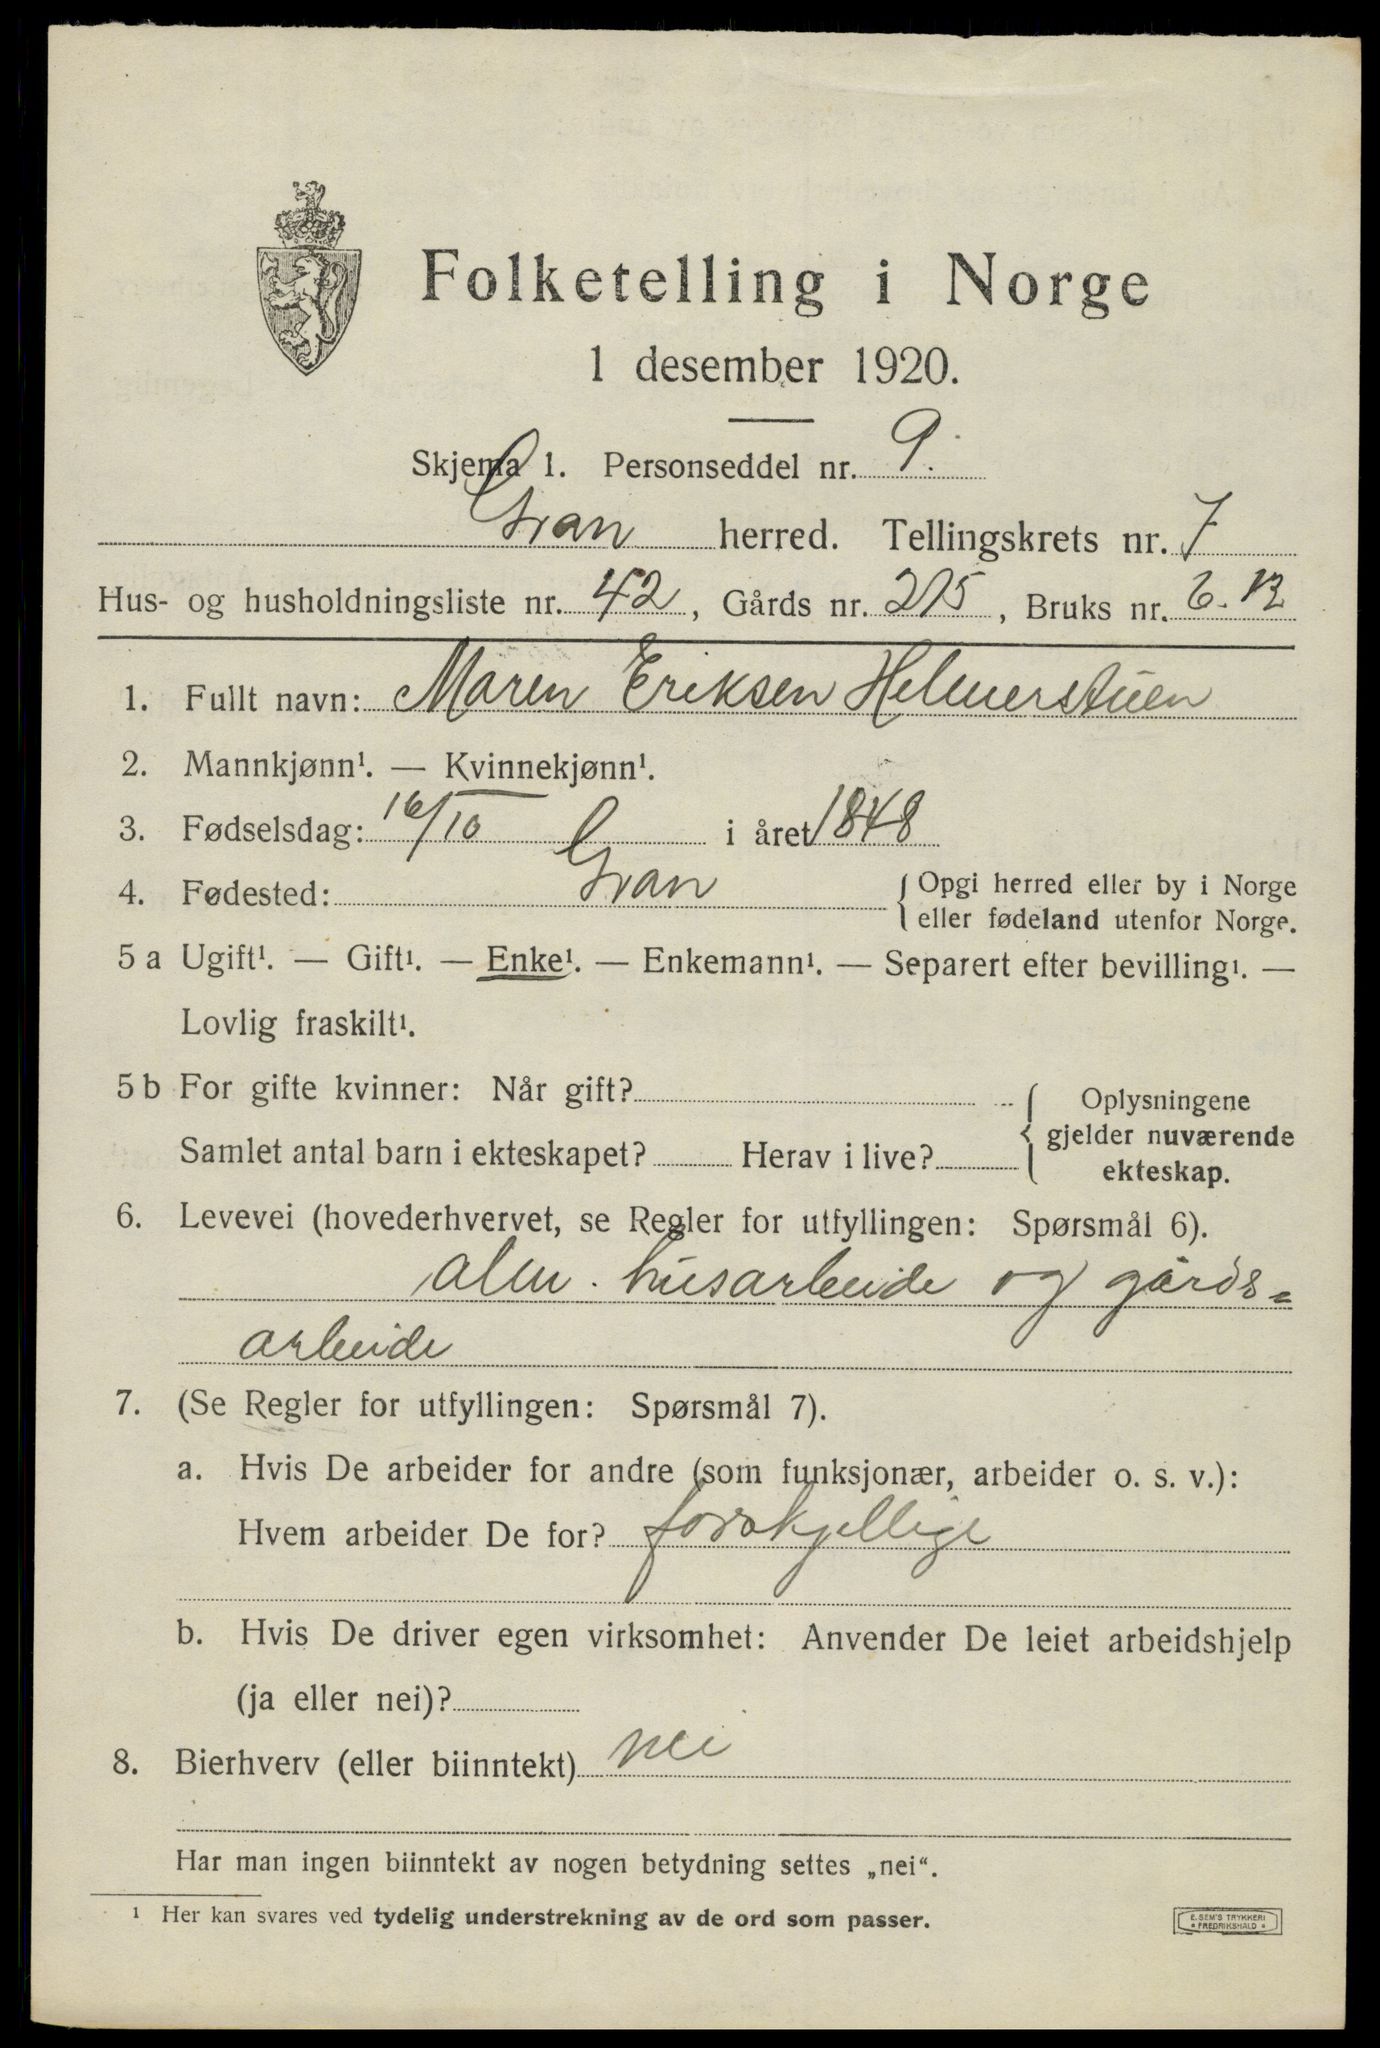 Folketelling i Norge
1 desember 1920.
Skjema 1. Personseddel nr. 9.
Gran herred. Tellingskrets nr. 7
Hus- og husholdningsliste nr. 42, Gårds nr. 275, Bruks nr. 6.12
1. Fullt navn: Maren Eriksen Helmerstuen
2. Mannkjønn¹. — Kvinnekjønn¹.
3. Fødselsdag: 16/10 i året 1848
4. Fødested: Gran { Opgi herred eller by i Norge
eller fødeland utenfor Norge.
5 a Ugift¹. — Gift¹. — Enke¹. — Enkemann¹. — Separert efter bevilling¹. —
Lovlig fraskilt¹.
5 b For gifte kvinner: Når gift? { Oplysningene
gjelder nuværende
Samlet antal barn i ekteskapet? Herav i live?
ekteskap.
6. Levevei (hovederhvervet, se Regler for utfyllingen: Spørsmål 6).
alm. husarbeide og gårds=
arbeide
7. (Se Regler for utfyllingen: Spørsmål 7).
a. Hvis De arbeider for andre (som funksjonær, arbeider o. s. v.):
Hvem arbeider De for? forskjellige
b. Hvis De driver egen virksomhet: Anvender De leiet arbeidshjelp
(ja eller nei)?
8. Bierhverv (eller biinntekt) nei
Har man ingen biinntekt av nogen betydning settes „nei“.
¹ Her kan svares ved tydelig understrekning av de ord som passer.
E. SEM'S TRYKKERI
• FREDRIKSHALD •